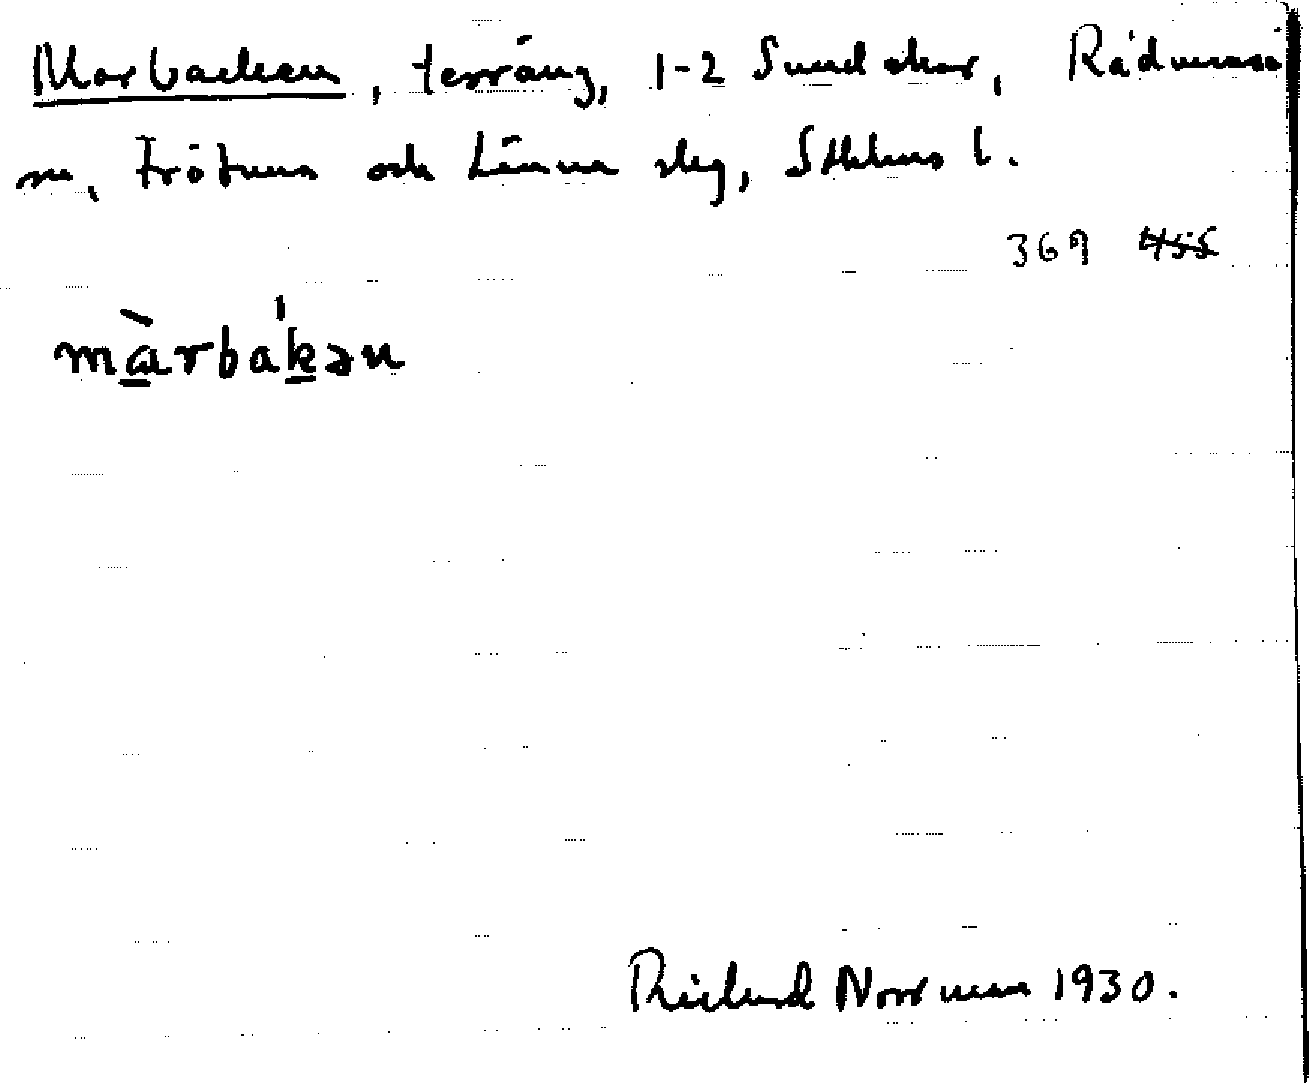 Marbacken, terräng, 1-2 Sundskar, Rådmansö
sn, Frötuna och Länna slg, Sthlms l.
369 455
màrbákən
Richard Norrman 1930.